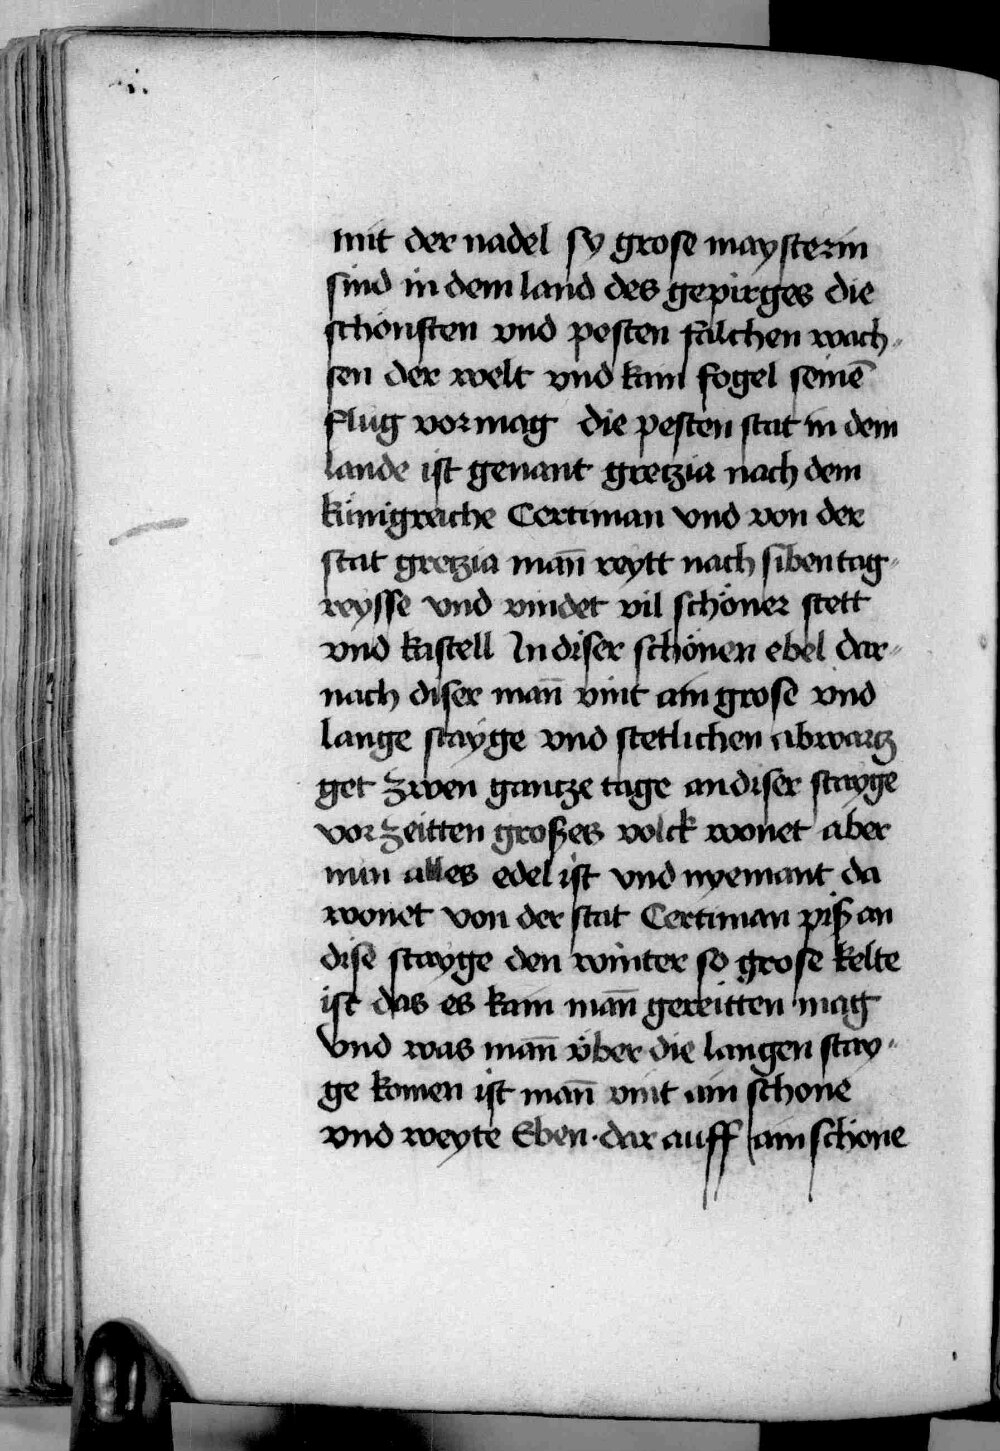 mit der nadel sy grose maysterin
sind in dem land des gepirges die
schonsten vnd pesten falchen wach-
sen der welt vnd kain fogel seinē
flug vormag die pesten stat in dem
lande ist genant gretzia nach dem
künigreiche Certiman vnd von der
stat gretzia man̄ reytt nach siben tag-
reysse vnd vindet vil schöner stett
vnd kastell In diser schönen ebel dar-
nach diser man̄ vint ain grose vnd
lange stayge vnd stetlichen abwartz
get zwen gantze tage an diser stayge
vor zeitten großes volck wonet aber
nun alles edel ist vnd nyemant da
wonet von der stat Certiman piß an
dise stayge den winter so grose kelte
ist das es kain man̄ gereitten mag
Vnd was man̄ über die langen stay-
ge komen ist man̄ vint ain schone
vnd weyte Eben · dar auff ain schone